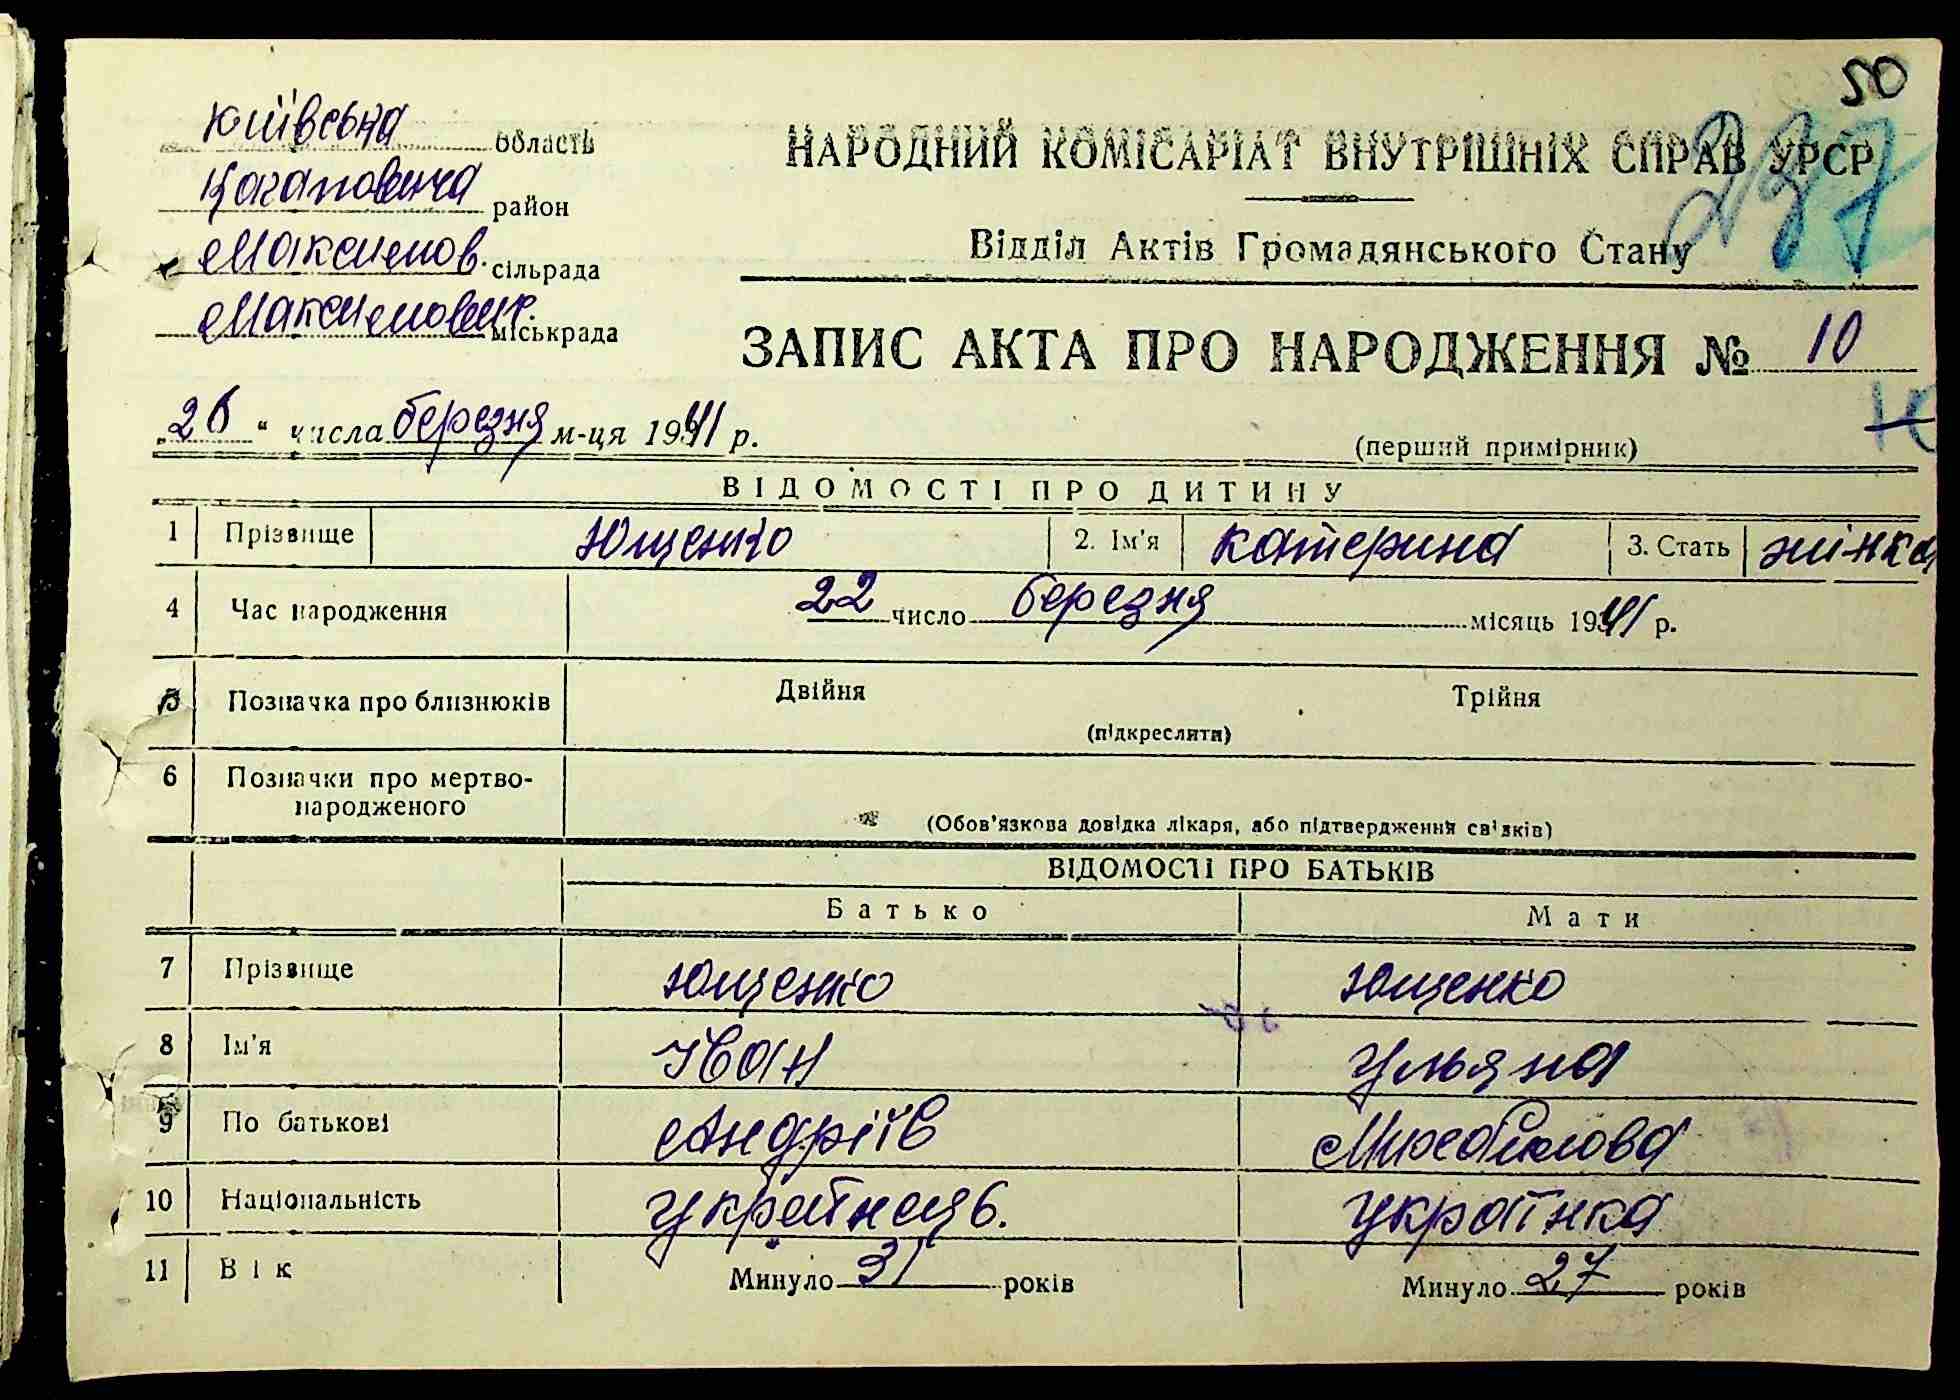 50
237
Київська область
Кагановича район
Максимов. сільрада
Максимович. міськрада
НАРОДНИЙ КОМІСАРІАТ ВНУТРІШНІХ СПРАВ УРСР
Відділ Актів Громадянського Стану
ЗАПИС АКТА ПРО НАРОДЖЕННЯ № 10
„26“ числа березня м-ця 1941 р.
(перший примірник)
ВІДОМОСТІ ПРО ДИТИНУ
1 Прізвище Ющенко 2. Ім'я Катерина 3. Стать жінка
4 Час народження 22 число березня місяць 1941 р.
5 Позначка про близнюків Двійня Трійня
(підкреслити)
6 Позначки про мертво-
народженого
(Обов'язкова довідка лікаря, або підтвердження свідків)
ВІДОМОСТІ ПРО БАТЬКІВ
Батько Мати
7 Прізвище Ющенко Ющенко
8 Ім'я Іван Ульяна
9 По батькові Андріїв Михайлова
10 Національність Українець. Українка
11 Вік Минуло 31 років Минуло 27 років